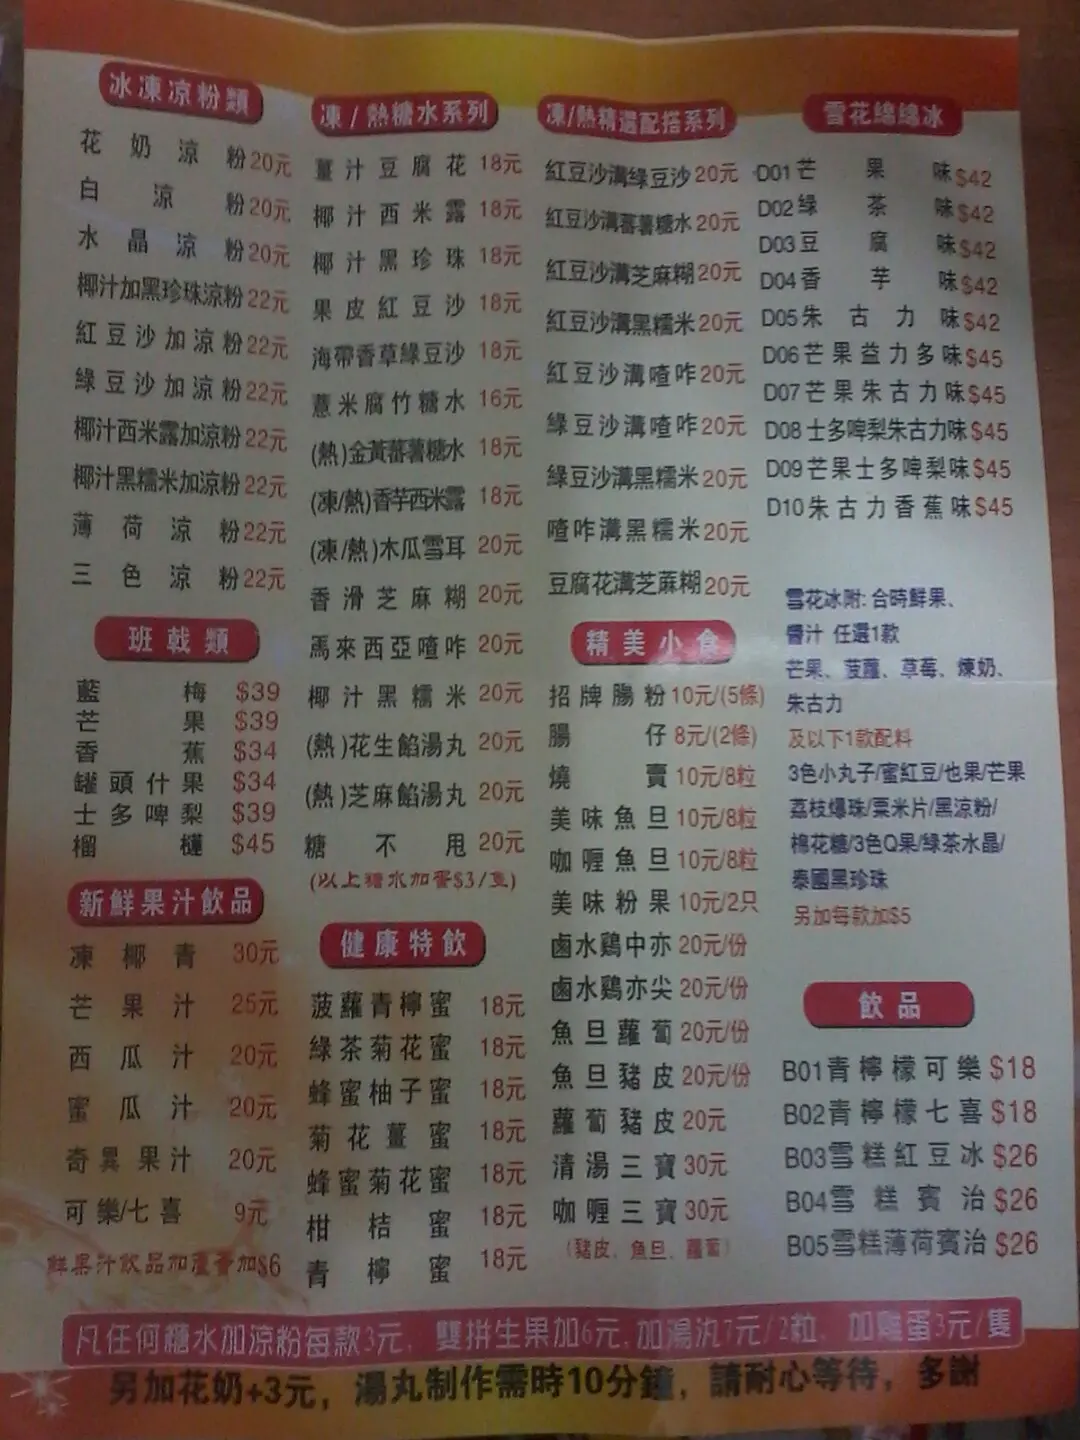 冰凍凉粉類
花奶凉粉20元
白凉粉20元
水晶凉粉20元
椰汁加黑珍珠凉粉22元
紅豆沙加凉粉22元
綠豆沙加凉粉22元
椰汁西米露加凉粉22元
椰汁黑糯米加凉粉22元
薄荷凉粉22元
三色凉粉22元
班戟類
藍莓 $39
芒果 $39
香蕉 $34
罐頭什果 $34
士多啤梨 $39
榴槤 $45
新鮮果汁飲品
凍椰青 30元
芒果汁 25元
西瓜汁 20元
蜜瓜汁 20元
奇異果汁 20元
可樂/七喜 9元
鮮果汁飲品加蘆薈加$6
凍/熱糖水系列
薑汁豆腐花 18元
椰汁西米露 18元
椰汁黑珍珠 18元
果皮紅豆沙 18元
海帶香草綠豆沙 18元
薏米腐竹糖水 16元
(熱)金黃蕃薯糖水 18元
(凍/熱)香芋西米露 18元
(凍/熱)木瓜雪耳 20元
香滑芝麻糊 20元
馬來西亞喳咋 20元
椰汁黑糯米 20元
(熱)花生餡湯丸 20元
(熱)芝麻餡湯丸 20元
糖不甩 20元
(以上糖水加蛋$3/隻)
健康特飲
菠蘿青檸蜜 18元
綠茶菊花蜜 18元
蜂蜜柚子蜜 18元
菊花薑蜜 18元
蜂蜜菊花蜜 18元
柑桔蜜 18元
青檸蜜 18元
凍/熱精選配搭系列
紅豆沙溝綠豆沙20元
紅豆沙溝蕃薯糖水20元
紅豆沙溝芝麻糊20元
紅豆沙溝黑糯米20元
紅豆沙溝喳咋20元
綠豆沙溝喳咋20元
綠豆沙溝黑糯米20元
喳咋溝黑糯米20元
豆腐花溝芝麻糊20元
精美小食
招牌腸粉10元/(5條)
腸仔8元/(2條)
燒賣10元/8粒
美味魚旦10元/8粒
咖喱魚旦10元/8粒
美味粉果10元/2只
鹵水鷄中亦20元/份
鹵水鷄亦尖20元/份
魚旦蘿蔔20元/份
魚旦豬皮20元/份
蘿蔔豬皮20元
清湯三寶30元
咖喱三寶30元
(豬皮、魚旦、蘿蔔)
雪花綿綿冰
D01芒果味$42
D02綠茶味$42
D03豆腐味$42
D04香芋味$42
D05朱古力味$42
D06芒果益力多味$45
D07芒果朱古力味$45
D08士多啤梨朱古力味$45
D09芒果士多啤梨味$45
D10朱古力香蕉味$45
雪花冰附:合時鮮果、
醬汁 任選1款
芒果、菠蘿、草莓、煉奶、
朱古力
及以下1款配料
3色小丸子/蜜紅豆/也果/芒果
荔枝爆珠/粟米片/黑凉粉/
棉花糖/3色Q果/綠茶水晶/
泰國黑珍珠
另加每款加$5
飲品
B01青檸檬可樂$18
B02青檸檬七喜$18
B03雪糕紅豆冰$26
B04雪糕賓治$26
B05雪糕薄荷賓治$26
凡任何糖水加凉粉每款3元，雙拼生果加6元,加湯丸7元/2粒，加雞蛋3元/隻
另加花奶+3元，湯丸制作需時10分鐘，請耐心等待，多謝